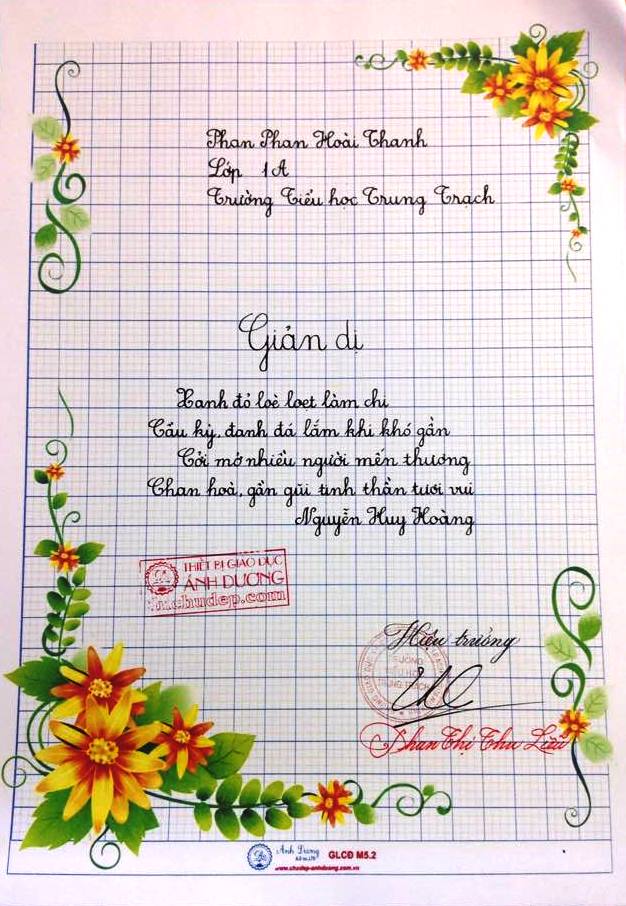 Phan Phan Hoài Thanh
Lớp 1A
Trường Tiểu học Trung Trạch
Giản dị
Xanh đỏ loè loẹt làm chi
Cầu kỳ, đanh đá lắm khi khó gần
Cởi mở nhiều người mến thương
Chan hoà, gần gũi tinh thần tươi vui
Nguyễn Huy Hoàng
THIẾT BỊ GIÁO DỤC
ÁNH DƯƠNG
chudep.com
Hiệu trưởng
TRƯỜNG
TIỂU HỌC
TRUNG TRẠCH
Phan Thị Thu Liễu
Ánh Dương GLCĐ M5.2
www.chudep-anhduong.com.vn